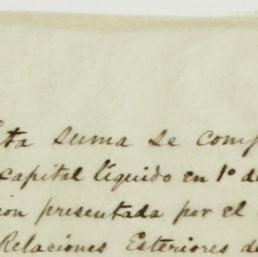 Esta suma se comp
capital líquido en 1º de
ion presentada por el
Relaciones Esteriores de